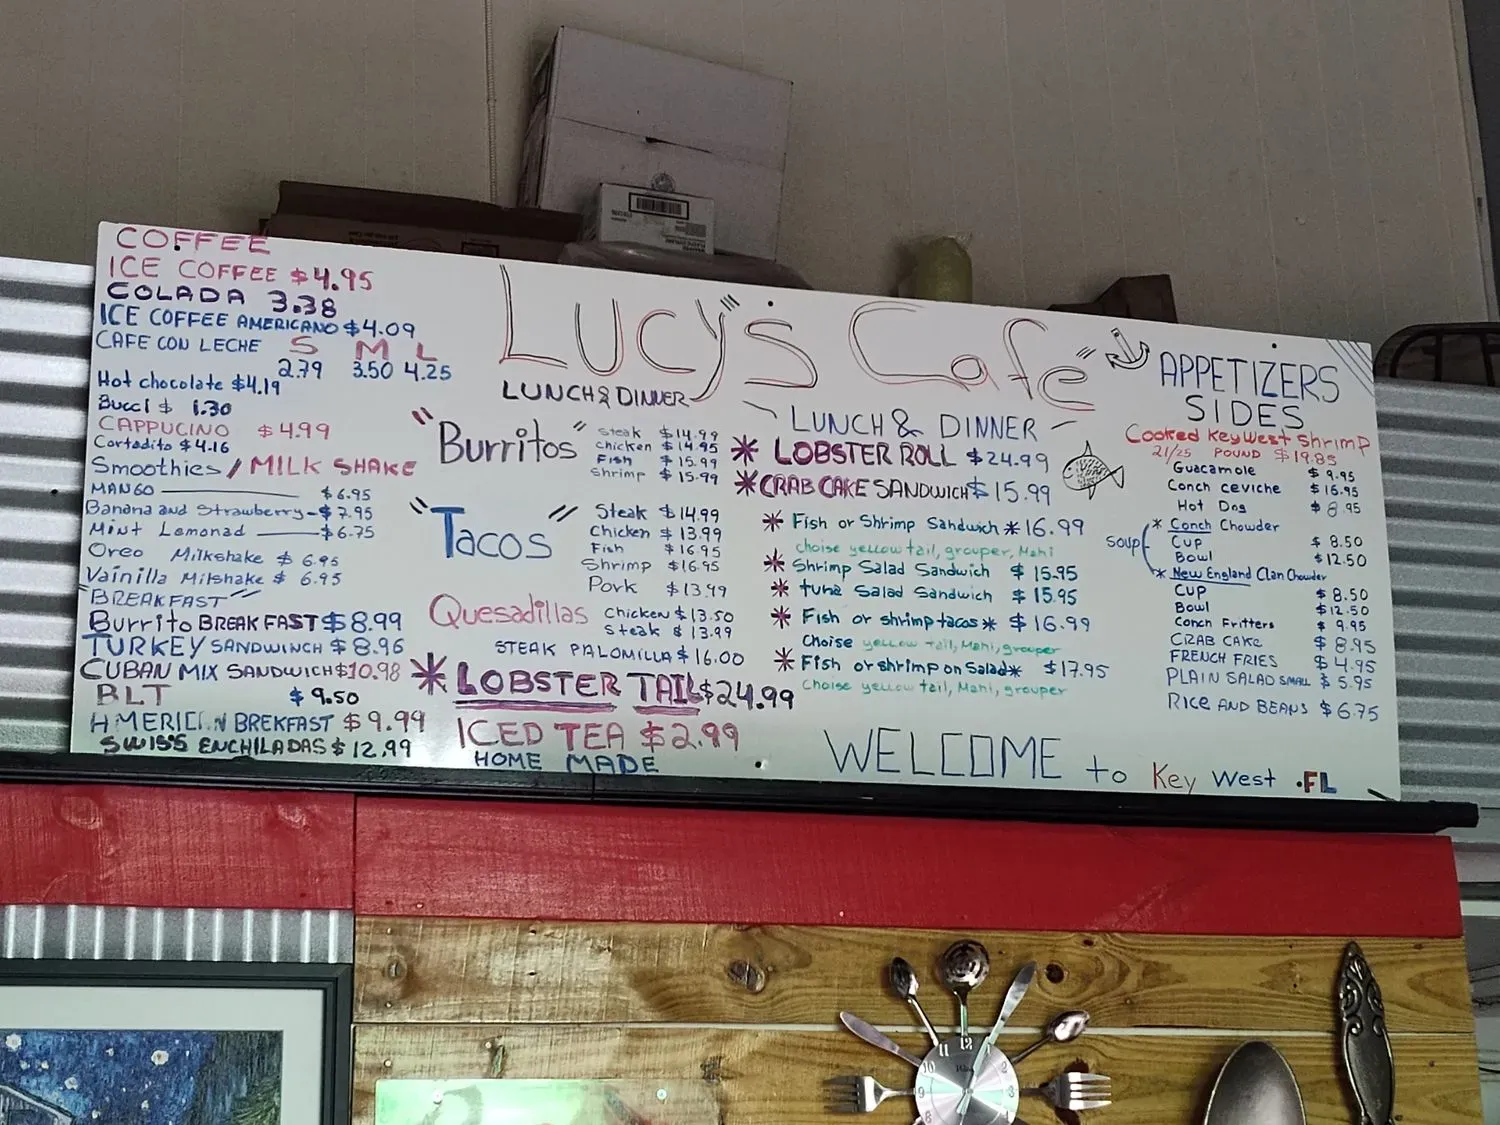 COFFEE
ICE COFFEE $4.95
COLADA 3.38
ICE COFFEE AMERICANO $4.09
CAFE CON LECHE S M L
2.79 3.50 4.25
Hot chocolate $4.19
Bucci $ 1.30
CAPPUCINO $4.99
Cortadito $4.16
Smoothies / MILK SHAKE
MANGO $6.95
Banana and Strawberry - $7.95
Mint Lemonad $6.75
Oreo Milkshake $ 6.95
Vainilla Milshake $ 6.95
"BREAKFAST"
Burrito BREAKFAST $8.99
TURKEY SANDWINCH $8.96
CUBAN MIX SANDWICH $10.98
BLT $9.50
AMERICAN BREKFAST $9.99
SWISS ENCHILADAS $12.99
Lucy's Cafe"
LUNCH & DINNER
"Burritos"
Steak $14.99
Chicken $14.95
Fish $15.99
Shrimp $15.99
"Tacos"
Steak $14.99
Chicken $13.99
Fish $16.95
Shrimp $16.95
Pork $13.99
Quesadillas Chicken $13.50
Steak $13.99
STEAK PALOMILLA $16.00
* LOBSTER TAIL $24.99
ICED TEA $2.99
HOME MADE
LUNCH & DINNER
* LOBSTER ROLL $24.99
* CRAB CAKE SANDWICH $15.99
* Fish or Shrimp Sandwich * 16.99
Choise yellow tail, grouper, Mahi
* Shrimp Salad Sandwich $15.95
* tuna Salad Sandwich $15.95
* Fish or shrimp tacos * $16.99
Choise yellow tail, Mahi, grouper
* Fish or shrimp on Salad * $17.95
Choise yellow tail, Mahi, grouper
WELCOME to Key West .FL
APPETIZERS
SIDES
Cooked Key West Shrimp
21/25 POUND $19.85
Guacamole $9.95
Conch ceviche $16.95
Hot Dog $8.95
SOUP
* Conch Chowder
Cup $8.50
Bowl $12.50
* New England Clan Chowder
Cup $8.50
Bowl $12.50
Conch Fritters $9.95
CRAB CAKE $8.95
FRENCH FRIES $4.95
PLAIN SALAD SMALL $5.95
RICE AND BEANS $6.75
11 12 1
10 2
9 3
8